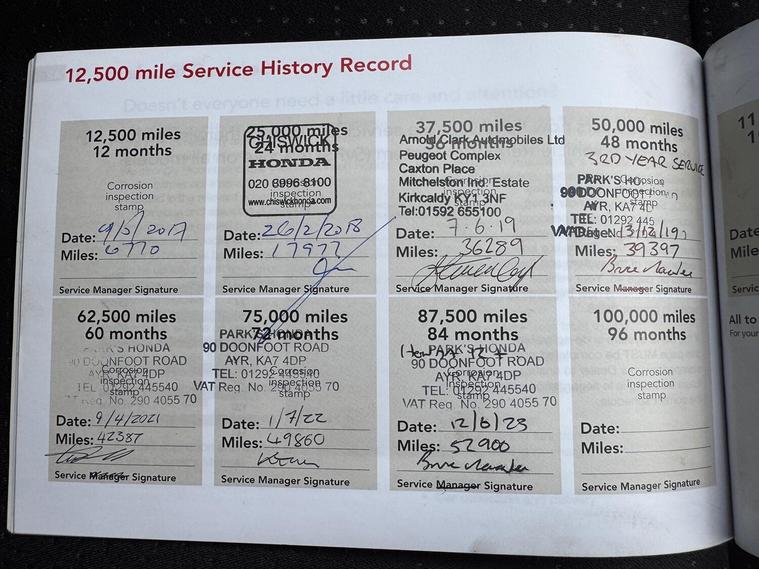 12,500 mile Service History Record
12,500 miles
12 months
Corrosion
inspection
stamp
Date: 9/3/2017
Miles: 6770
Service Manager Signature
25,000 miles
24 months
CHISWICK
HONDA
020 8996 8100
www.chiswickhonda.com
Corrosion
inspection
stamp
Date: 26/2/2018
Miles: 17977
Service Manager Signature
37,500 miles
36 months
Arnold Clark Automobiles Ltd
Peugeot Complex
Caxton Place
Mitchelston Ind. Estate
Kirkcaldy KY1 3NF
Tel:01592 655100
Date: 7.6.19
Miles: 36289
Service Manager Signature
50,000 miles
48 months
3RD YEAR SERVICE
PARK'S HO
90 DOONFOOT
AYR, KA7 4D
TEL: 01292 445
Corrosion
inspection
stamp
Date: 3/12/19
Miles: 39397
Service Manager Signature
62,500 miles
60 months
PARK'S HONDA
90 DOONFOOT ROAD
AYR, KA7 4DP
TEL: 01292 445540
VAT Reg. No. 290 4055 70
Corrosion
inspection
stamp
Date: 9/4/2021
Miles: 42387
Service Manager Signature
75,000 miles
72 months
PARK'S HONDA
90 DOONFOOT ROAD
AYR, KA7 4DP
TEL: 01292 445540
VAT Reg. No. 290 4055 70
Corrosion
inspection
stamp
Date: 1/7/22
Miles: 49860
Service Manager Signature
87,500 miles
84 months
PARK'S HONDA
90 DOONFOOT ROAD
AYR, KA7 4DP
TEL: 01292 445540
VAT Reg. No. 290 4055 70
Corrosion
inspection
stamp
Date: 12/6/23
Miles: 52900
Service Manager Signature
100,000 miles
96 months
Corrosion
inspection
stamp
Date:
Miles:
Service Manager Signature
11
Date
Mile
Service
All to
For your